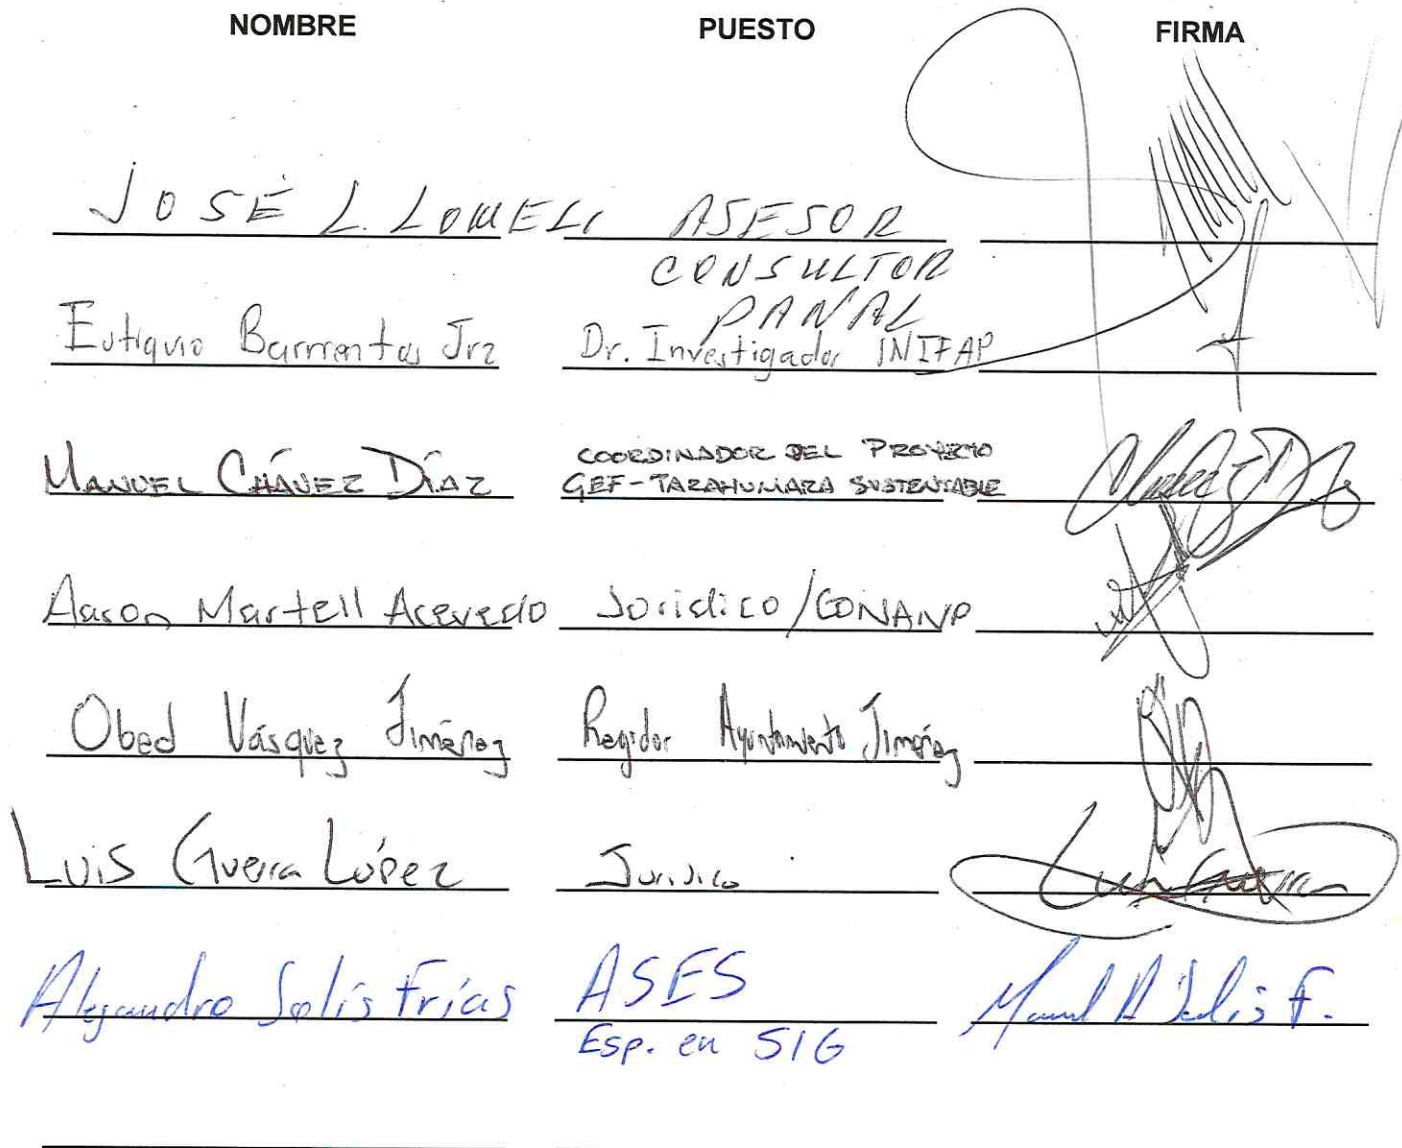 NOMBRE PUESTO FIRMA
JOSÉ L. LOMELI ASESOR
CONSULTOR
PANAL
Eutiquio Barrientos Jrz Dr. Investigador INIFAP
COORDINADOR DEL PROYECTO
MANUEL CHÁVEZ DÍAZ GEF-TARAHUMARA SUSTENTABLE
Aaron Martell Acevedo Juridico/CONANP
Obed Vásquez Jiménez Regidor Ayuntamiento Jiménez
Luis Guerra López Juridico Luis Guerra
Alejandro Solís Frías ASES Manuel A Solis F.
Esp. en SIG